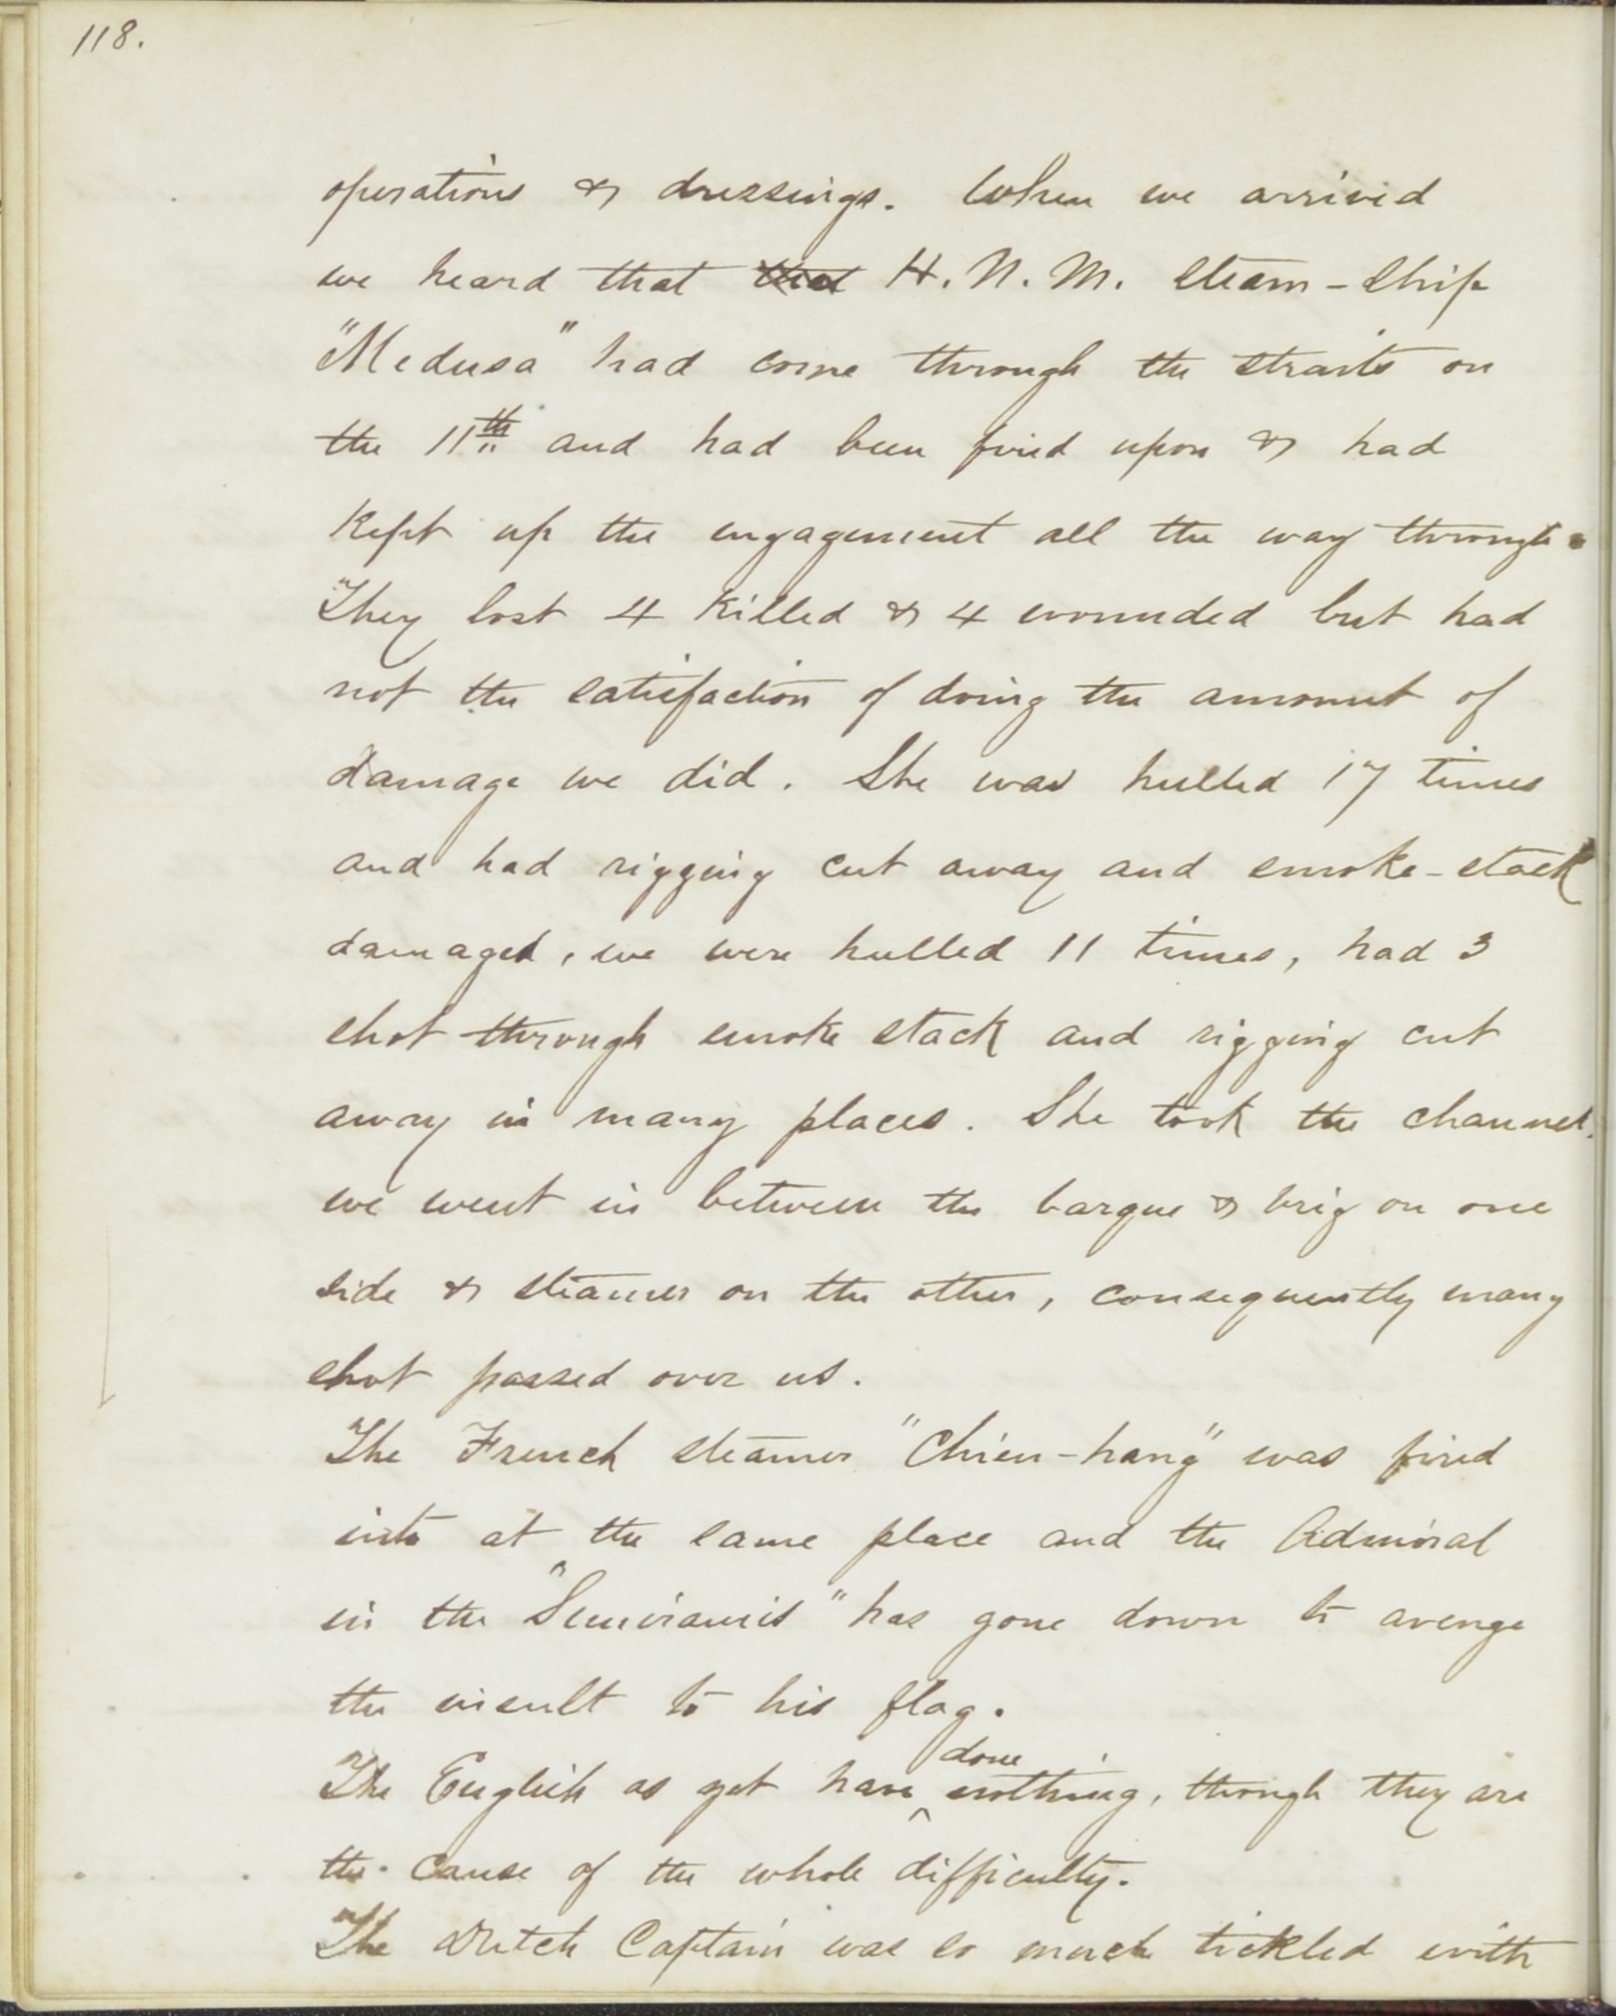 118.
operations & dressings. When we arrived
we heard that that H. N. M. steam-ship
"Medusa" had come through the straits on
the 11th and had been fired upon & had
kept up the engagement all the way through.
They lost 4 killed & 4 wounded but had
not the satisfaction of doing the amount of
damage we did. She was hulled 17 times
and had rigging cut away and smoke-stack
damaged, we were hulled 11 times, had 3
shot through smoke stack and rigging cut
away in many places. She took the channel.
we went in between the barque & brig on one
side & steamer on the other, consequently many
shot passed over us.
The French steamer "Chien-hang" was fired
into at the same place and the Admiral
in the "Semiramis" has gone down to avenge
the insult to his flag.
The English as yet have done nothing, though they are
the cause of the whole difficulty.
The Dutch Captain was so much tickled with